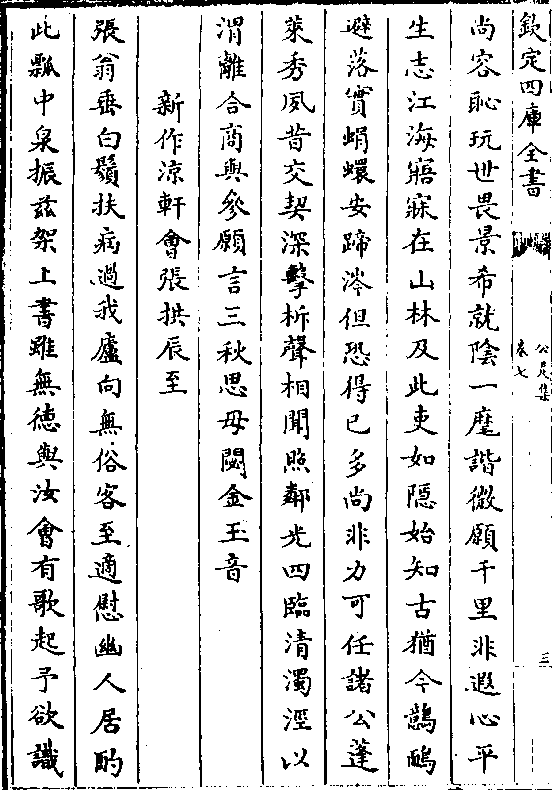 欽定四庫全書
公是集
卷七
三
尚容恥玩世畏景希就陰一麾諧微願千里非遐心平
生志江海寤寐在山林及此吏如隠始知古猶今鷦鷯
避落實蜎蠉安蹄涔但恐得已多尚非力可任諸公蓬
萊秀夙昔交契深擊柝聲相聞照鄰光四臨清濁涇以
渭離合商與參願言三秋思毋閟金玉音
新作涼軒會張拱辰至
張翁垂白鬚扶病過我廬向無俗客至適慰幽人居酌
此瓢中泉振兹架上書雖無徳與汝會有歌起予欲識